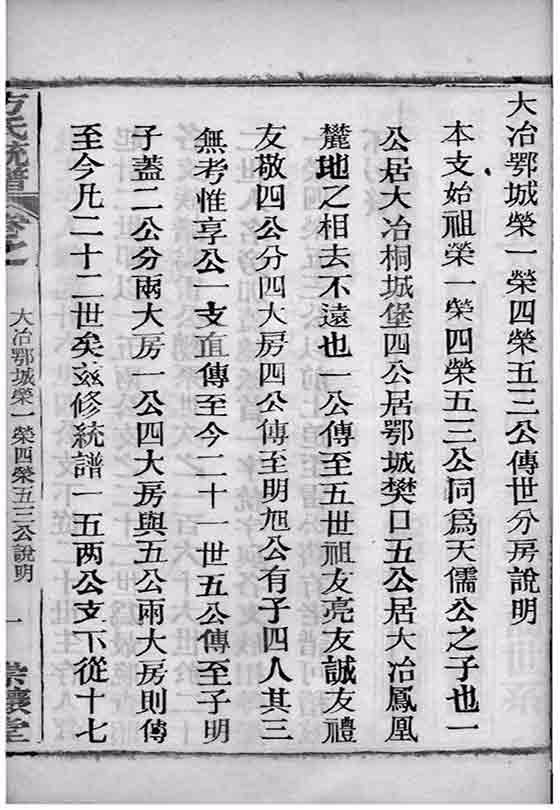 大冶鄂城榮一榮四榮五三公傳世分房說明
本支始祖榮一榮四榮五三公同爲天儒公之子也一
公居大冶桐城堡四公居鄂城樊口五公居大冶鳳凰
麓地之相去不遠也一公傳至五世祖友亮友誠友禮
友敬四公分四大房四公傳至明旭公有子四人其三
無考惟享公一支直傳至今二十一世五公傳至子明
子蓋二公分兩大房一公四大房與五公兩大房則傳
至今凡二十二世矣茲修統譜一五两公支下從十七
方氏統譜
卷之
大冶鄂城榮一榮四榮五三公說明
一
崇讓堂